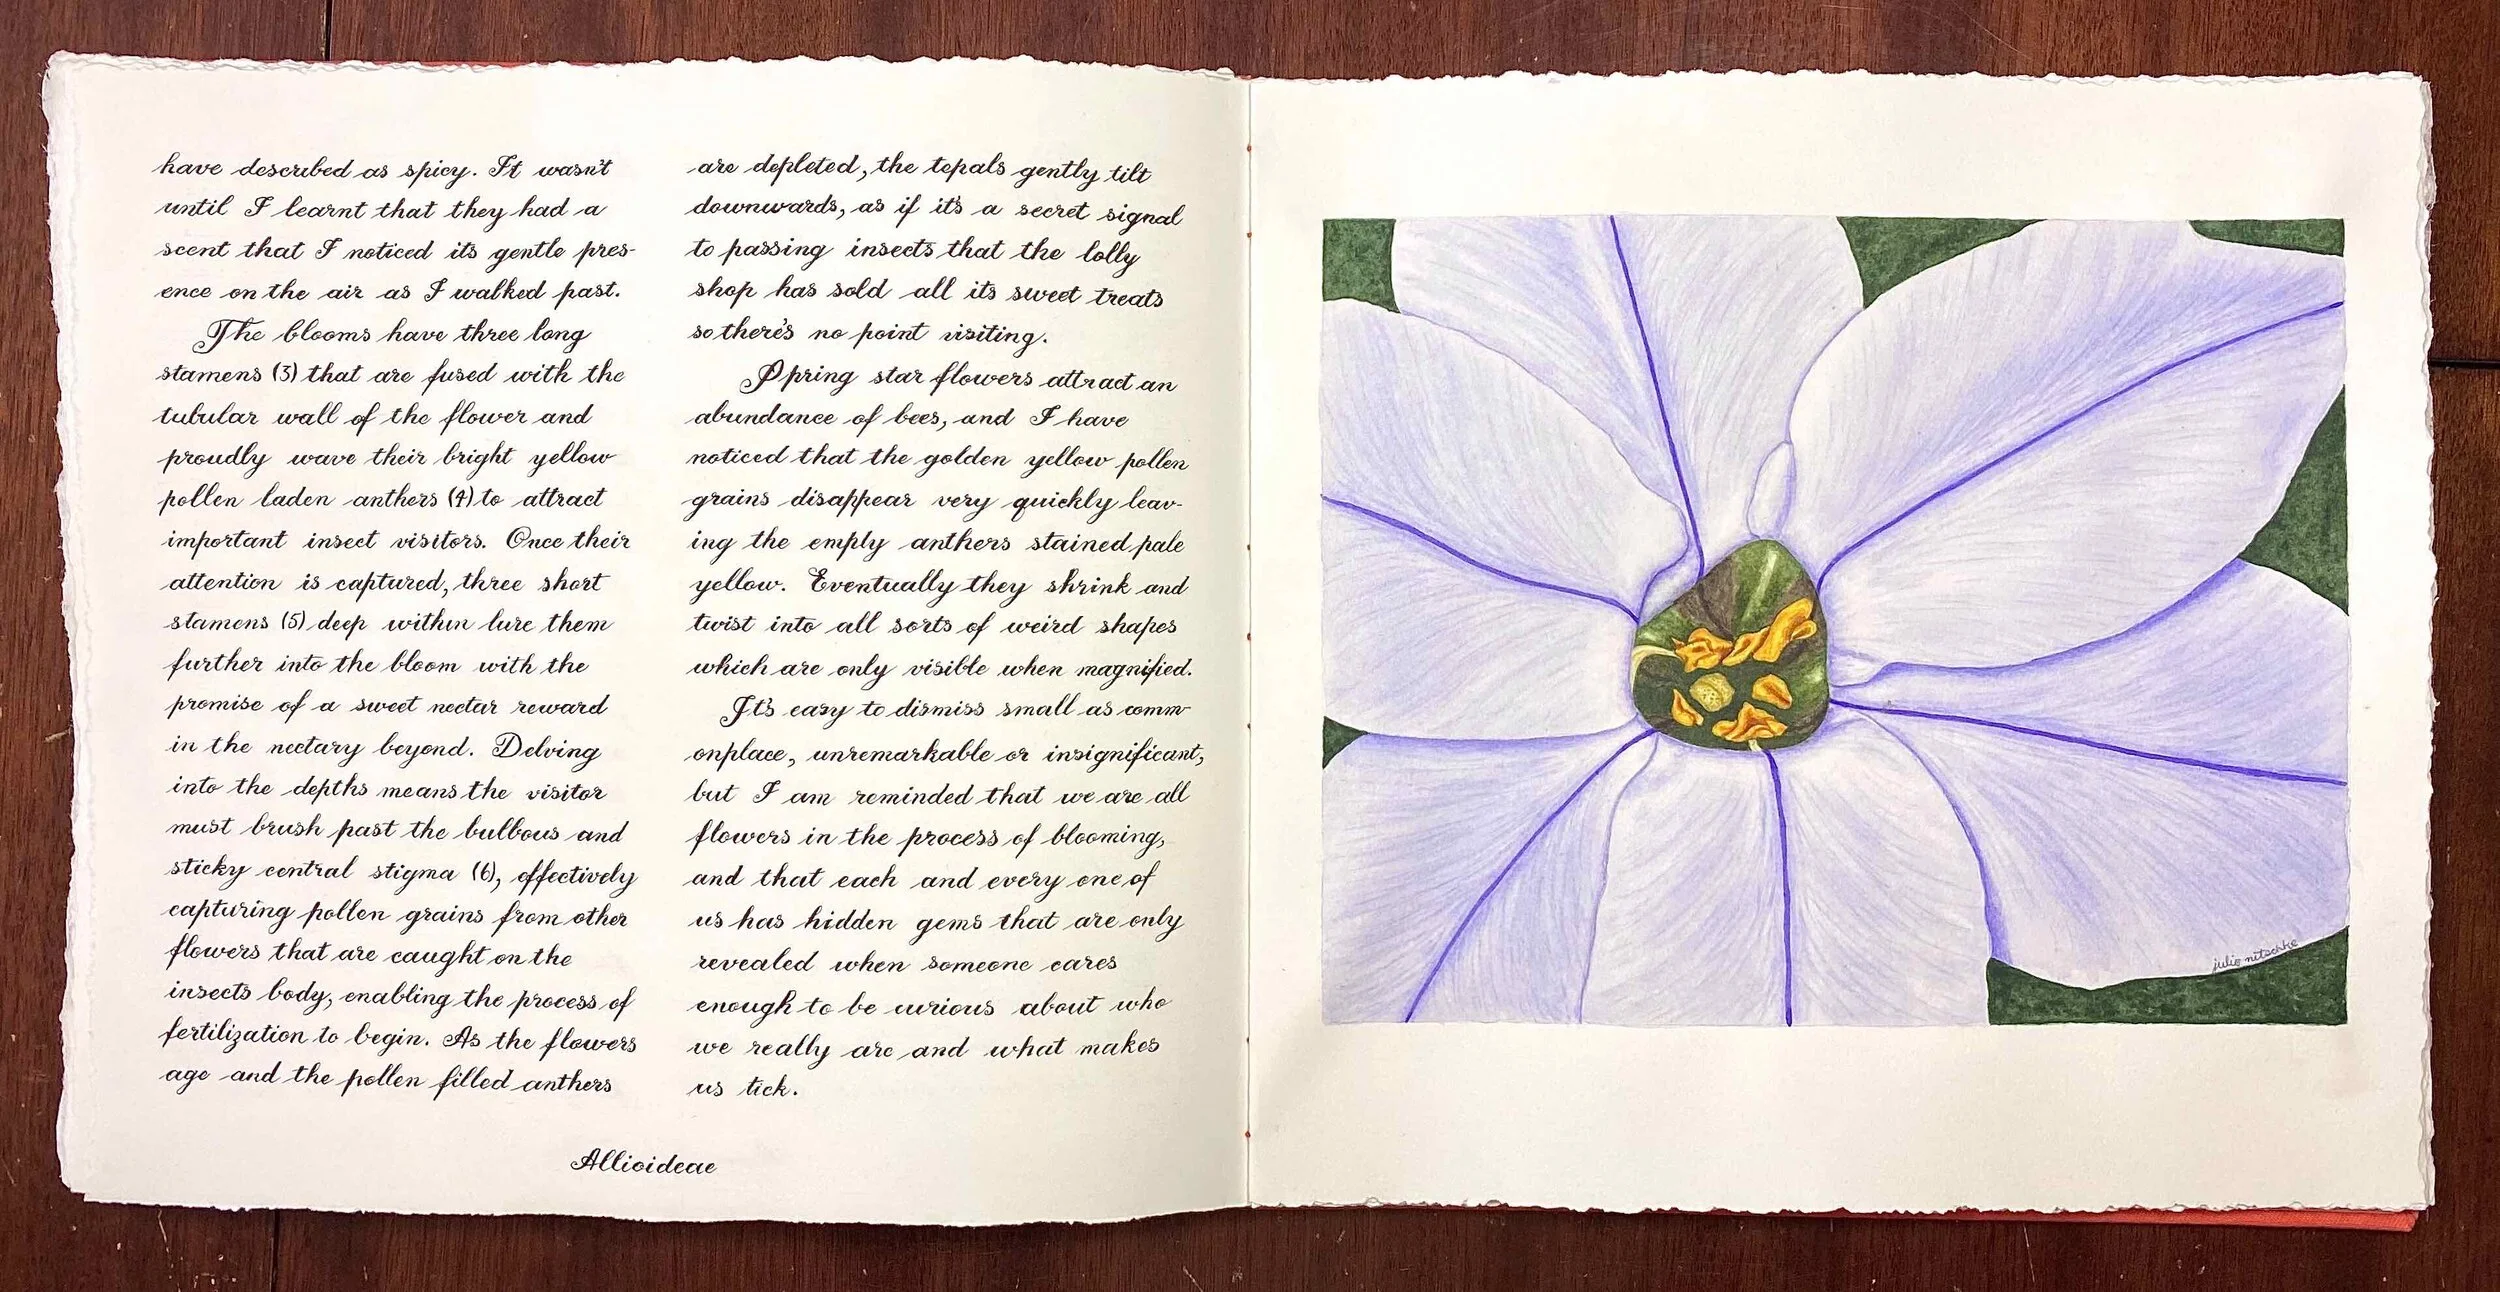 have described as spicy. It wasn't
until I learnt that they had a
scent that I noticed its gentle pres-
ence on the air as I walked past.
The blooms have three long
stamens (3) that are fused with the
tubular wall of the flower and
proudly wave their bright yellow
pollen laden anthers (4) to attract
important insect visitors. Once their
attention is captured, three short
stamens (5) deep within lure them
further into the bloom with the
promise of a sweet nectar reward
in the nectary beyond. Delving
into the depths means the visitor
must brush past the bulbous and
sticky central stigma (6), effectively
capturing pollen grains from other
flowers that are caught on the
insects body, enabling the process of
fertilization to begin. As the flowers
age and the pollen filled anthers
are depleted, the tepals gently tilt
downwards, as if it's a secret signal
to passing insects that the lolly
shop has sold all its sweet treats
so there's no point visiting.
Spring star flowers attract an
abundance of bees, and I have
noticed that the golden yellow pollen
grains disappear very quickly leav-
ing the empty anthers stained pale
yellow. Eventually they shrink and
twist into all sorts of weird shapes
which are only visible when magnified.
It's easy to dismiss small as comm-
onplace, unremarkable or insignificant,
but I am reminded that we are all
flowers in the process of blooming,
and that each and every one of
us has hidden gems that are only
revealed when someone cares
enough to be curious about who
we really are and what makes
us tick.
Allioideae
julie nitschke